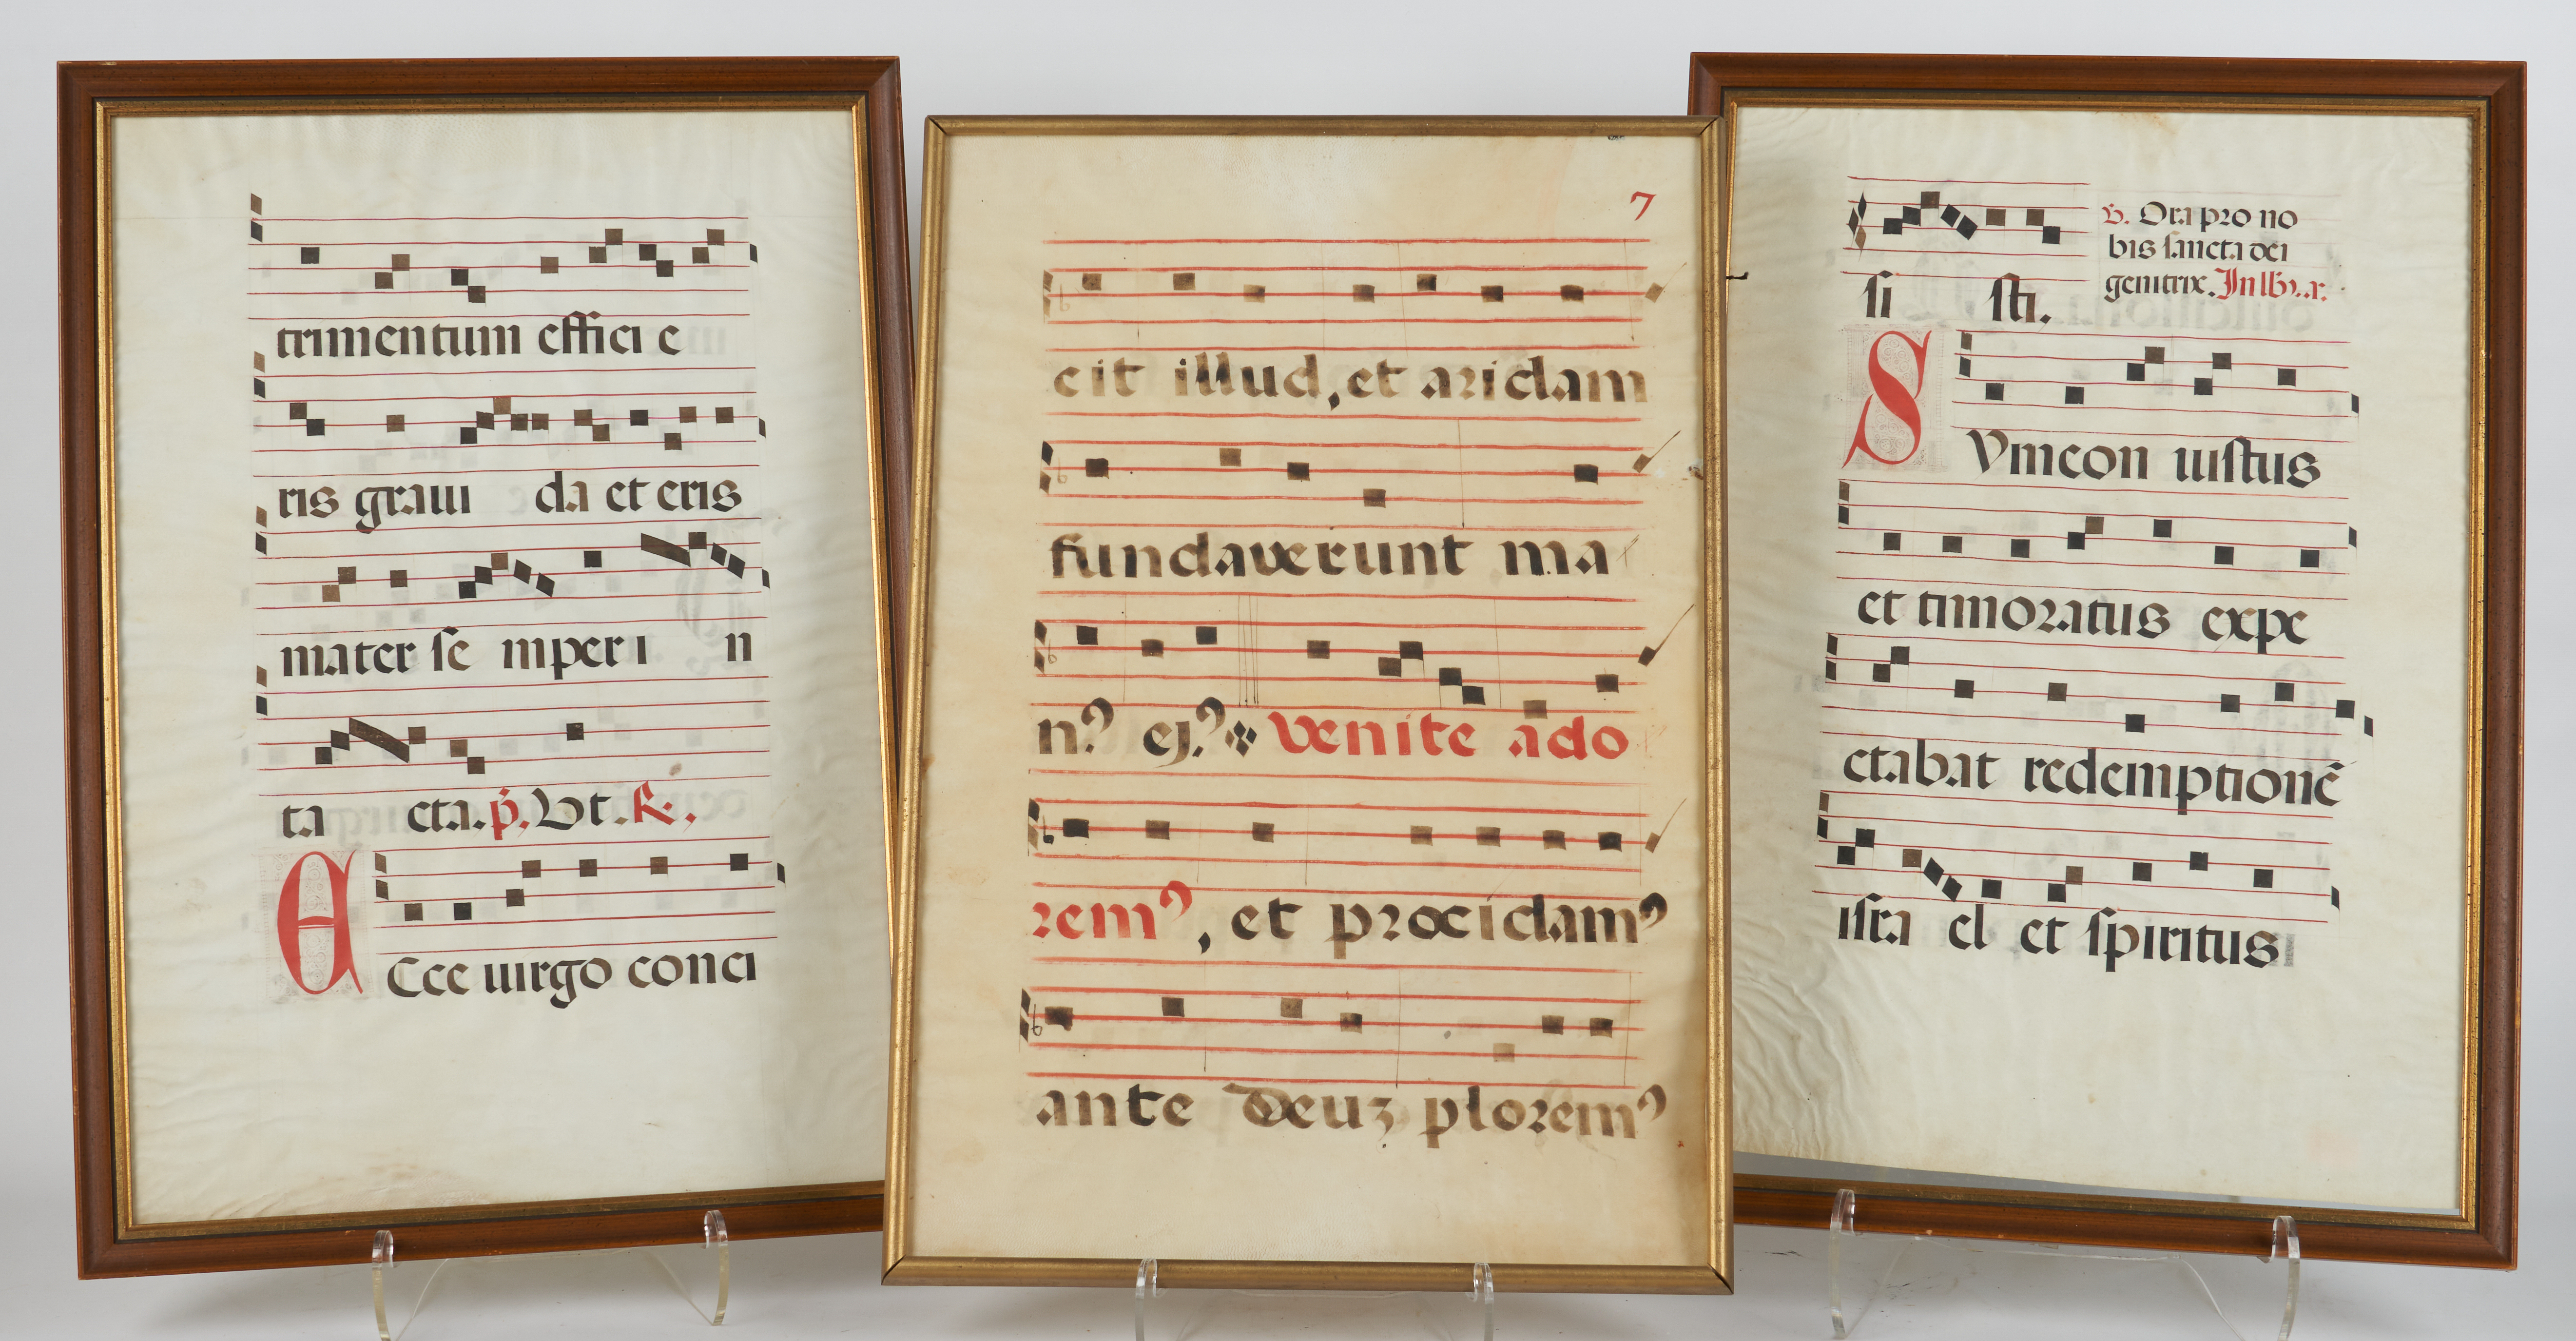 trimentum effici e
ris graui da et eris
mater se mper i n
ta cta. p̄. Vt. R.
ECce uirgo conci
7
cit illud, et aridam
fundaverunt ma
nꝰ ejꝰ venite ado
remꝰ, et procidamꝰ
ante deuz ploremꝰ
si sti.
℣. Ora pro no
bis sancta dei
genitrix.
SYmeon iustus
et timoratus expe
ctabat redemptionē
isra el et spiritus